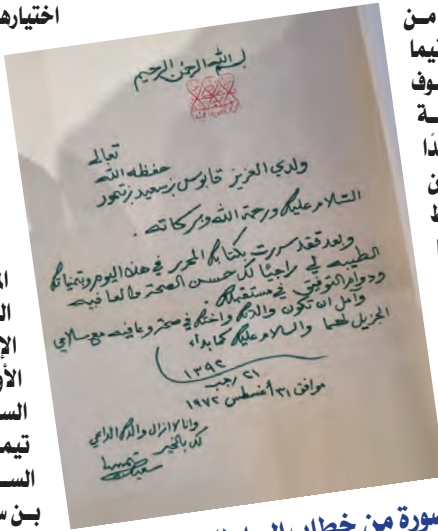 اختيارها
من
بسم الله الرحمن الرحيم
تعالى
ولدي العزيز قابوس بن سعيد بن تيمور حفظه الله
السلام عليكم ورحمة الله وبركاته .
وبعد فقد سررت بكتابكم المحرر في هذه اليوم وتمنياتكم
الطيبه لي راجيًا لك حسن الصحة والعافيه
ودوام التوفيق في مستقبلكم .
وآمل ان تكون والدتكم واختكم في صحة وعافيه مع سلامي
الجزيل لهما والسلام عليكم كما بداء
١٣٩٢
٢١ رجب
موافق ٣١ أغسطس ١٩٧٢
وانا لا ازال والدكم الداعي
لك بالخير
السـ
تيمـ
السـ
بـن سـ
صورة من خطاب